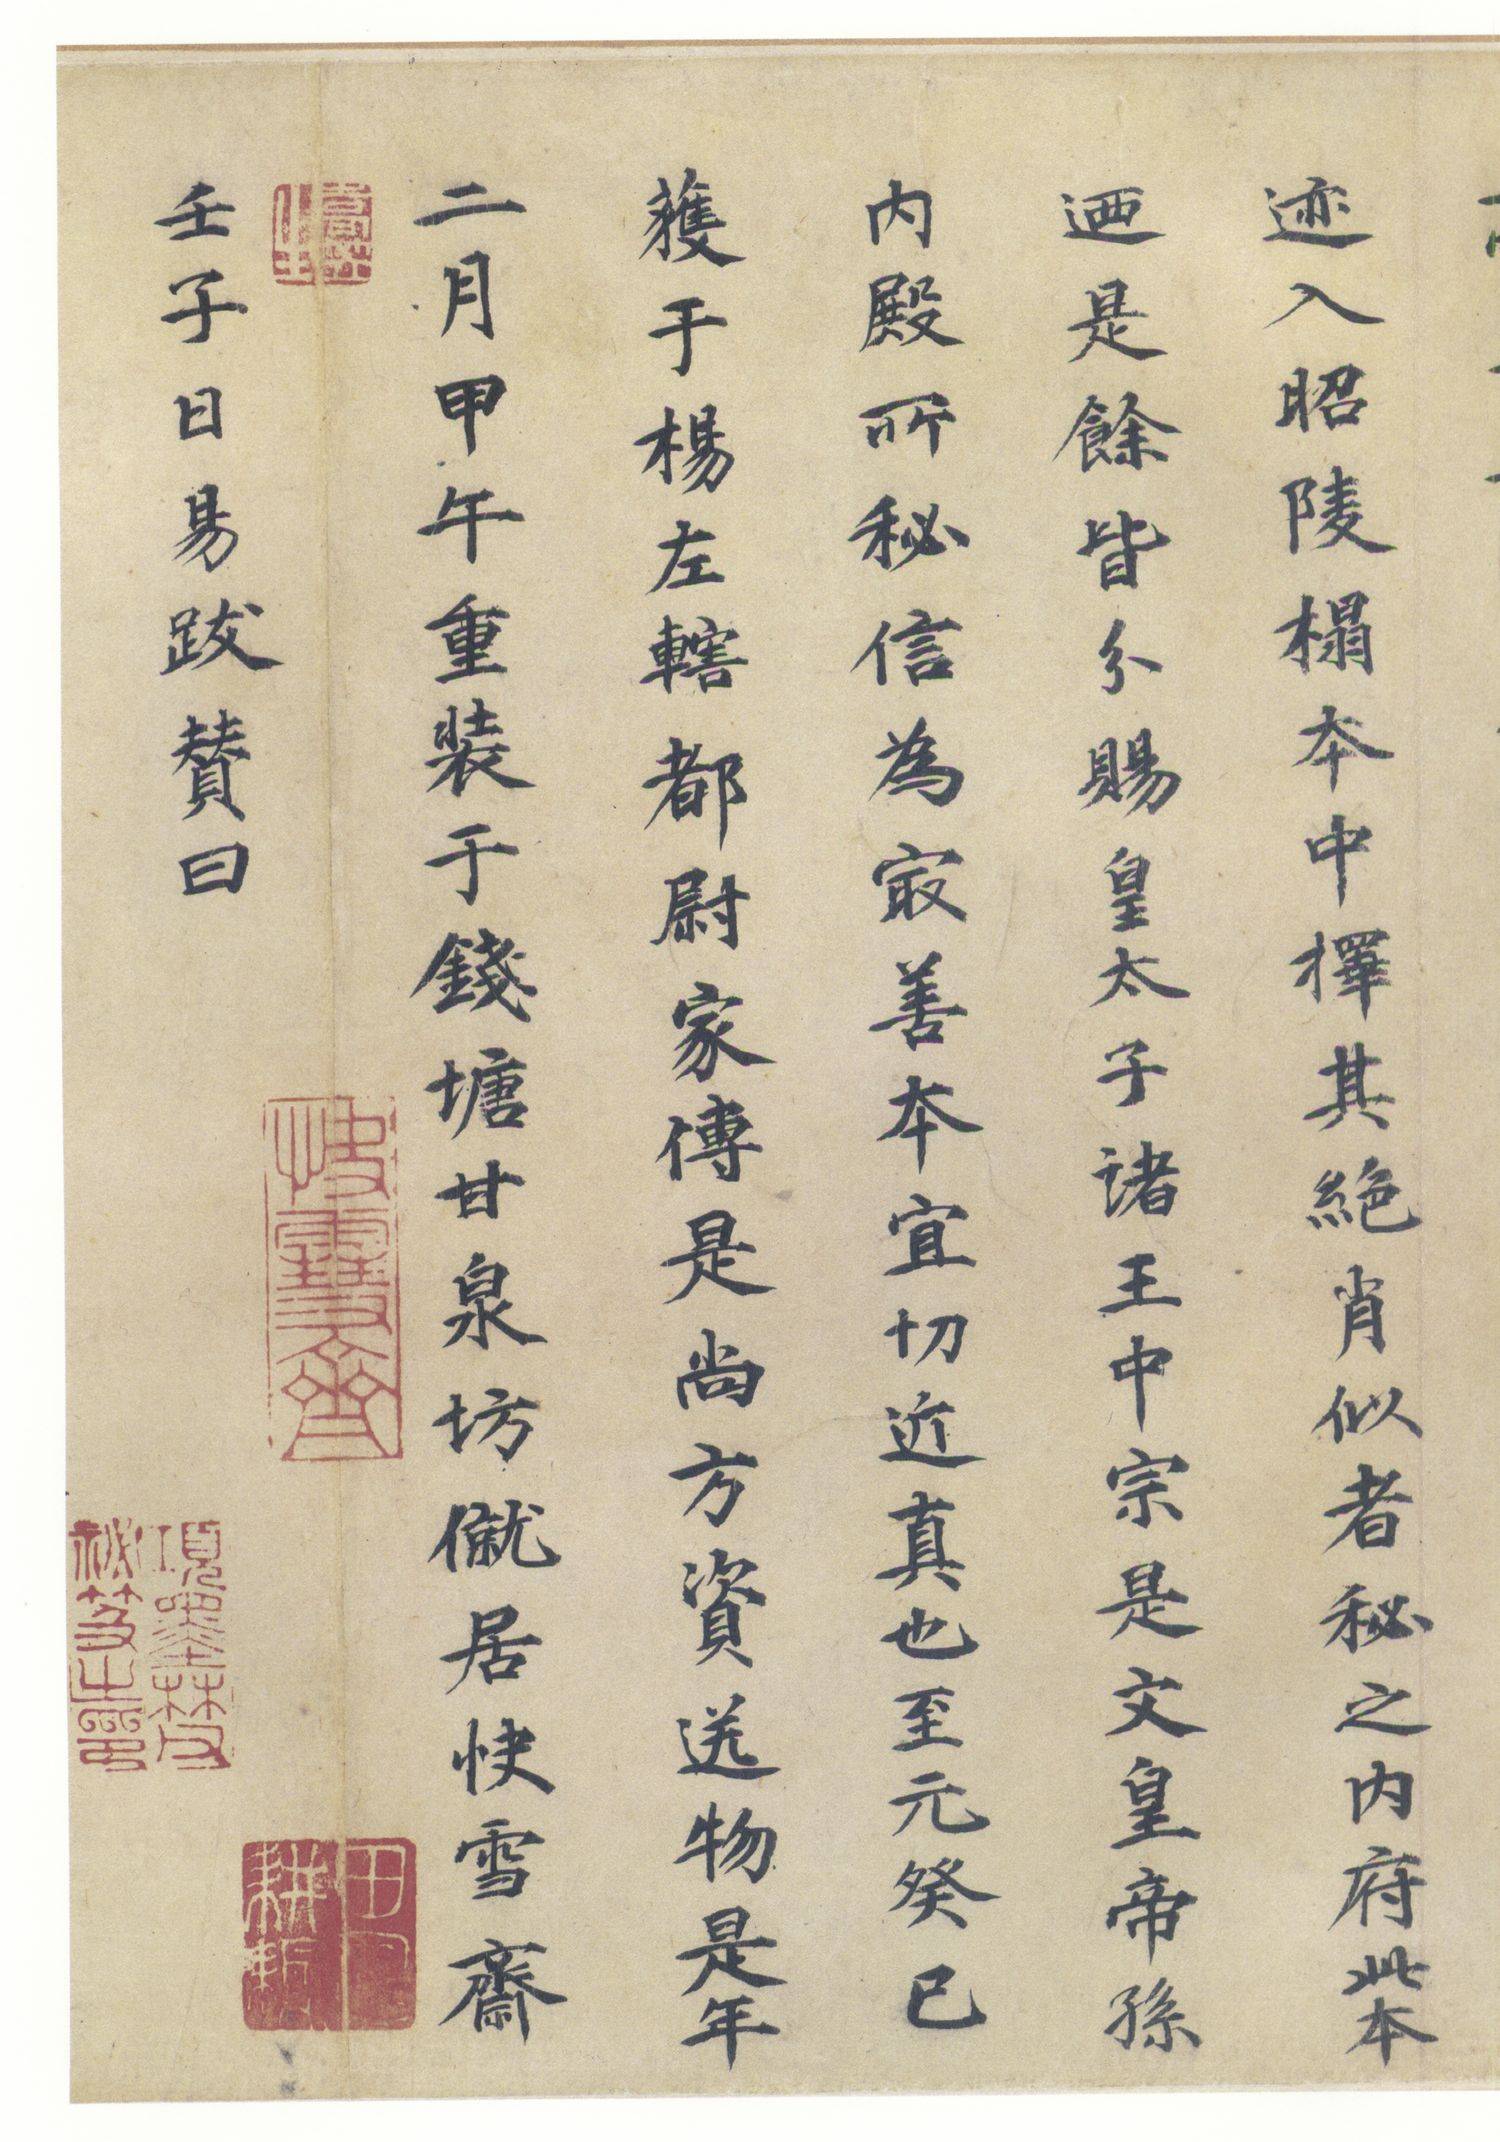 迹入昭陵榻本中擇其絶肖似者秘之內府此本
迺是餘皆分賜皇太子諸王中宗是文皇帝孫
內殿所秘信為㝡善本宜切近真也至元癸巳
蒦于楊左轄都尉家傳是尚方資送物是年
二月甲午重装于錢塘甘泉坊僦居快雪齋
壬子日易跋賛曰
快雪齋
項墨林父
秘笈之印